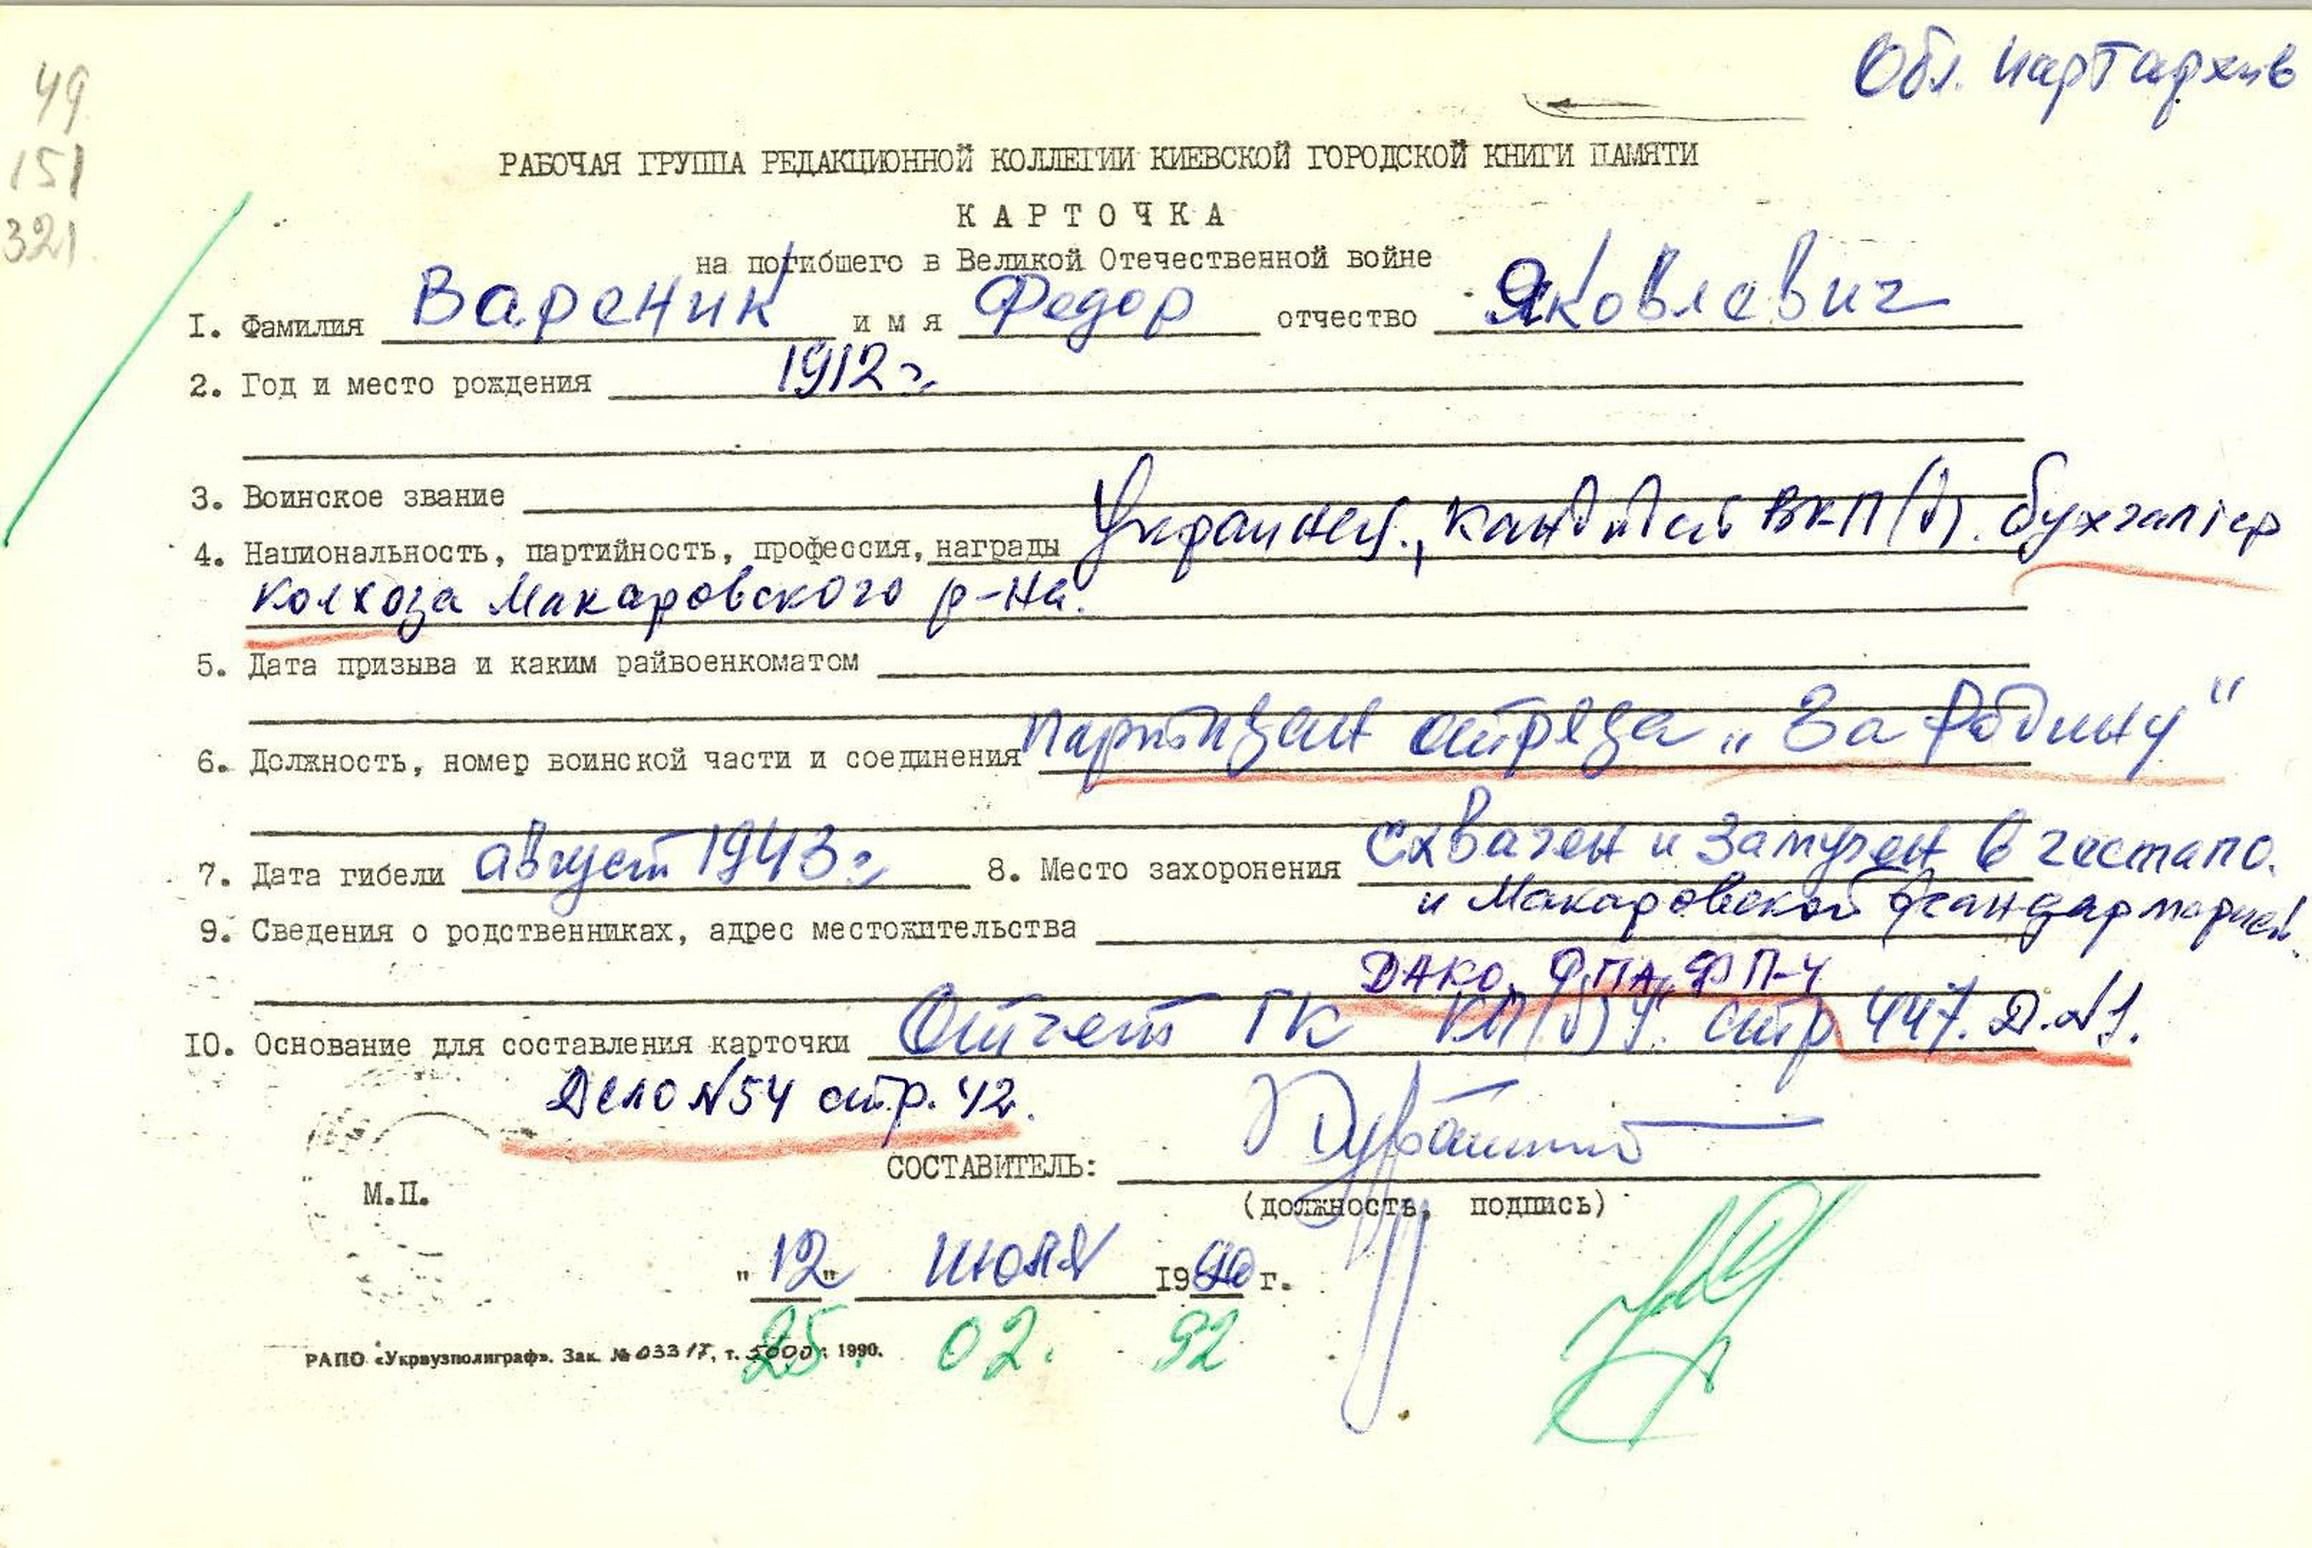 Обл. партархив
49
151
321.
РАБОЧАЯ ГРУППА РЕДАКЦИОННОЙ КОЛЛЕГИИ КИЕВСКОЙ ГОРОДСКОЙ КНИГИ ПАМЯТИ
КАРТОЧКА
на погибшего в Великой Отечественной войне
I. Фамилия Вареник имя Федор отчество Яковлевич
2. Год и место рождения 1912 г.
3. Воинское звание
4. Национальность, партийность, профессия, награды Украинец, кандидат ВКП(б). бухгалтер
колхоза Макаровского р-на.
5. Дата призыва и каким райвоенкоматом
6. Должность, номер воинской части и соединения партизан отряда „За Родину"
7. Дата гибели август 1943 г. 8. Место захоронения схвачен и замучен в гестапо.
и Макаровской жандармерией.
9. Сведения о родственниках, адрес местожительства
ДАКО, ФПА, ФП-4
10. Основание для составления карточки Отчет ГК КП(б)У. стр 447. Д.№1.
Дело №54 стр. 42.
СОСТАВИТЕЛЬ:
М.П.
(должность, подпись)
"12" июля 1990 г.
25. 02. 92
РАПО «Укрвузполиграф». Зак. № 03317, т. 5000, 1990.